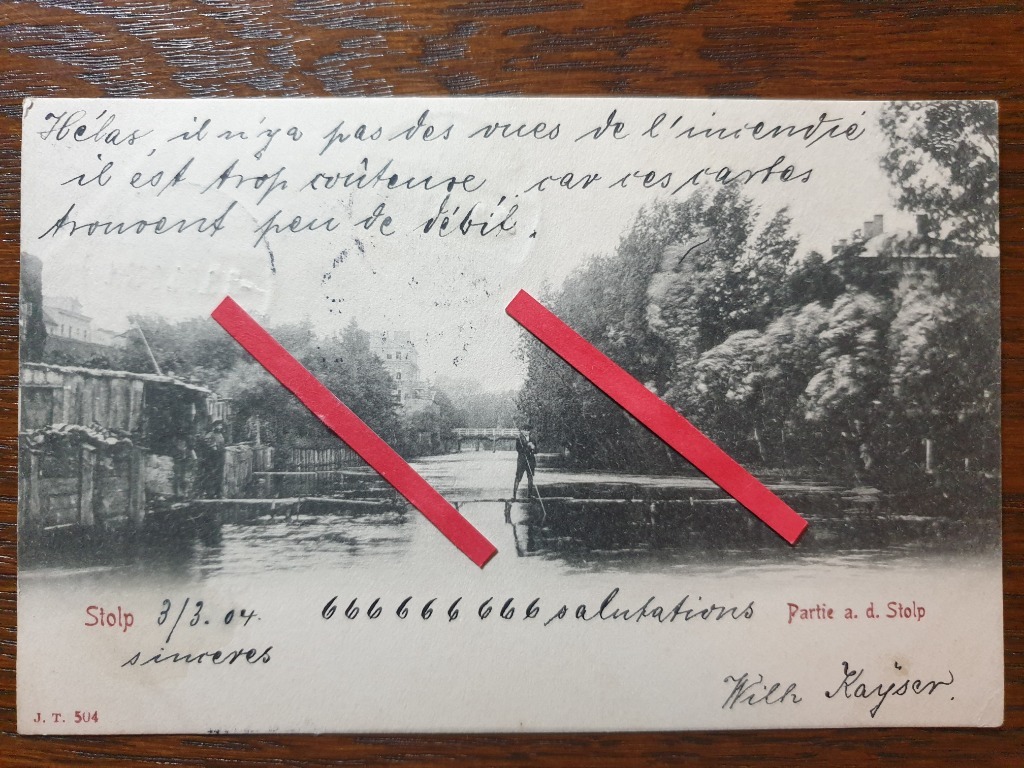 Hélas, il n'ya pas des vues de l'incendié
il est trop coûteuse, car ces cartes
trouvent peu de débit.
Stolp 3/3. 04. 666 666 666 salutations Partie a. d. Stolp
sinceres
Wilh Kaÿser.
J. T. 504